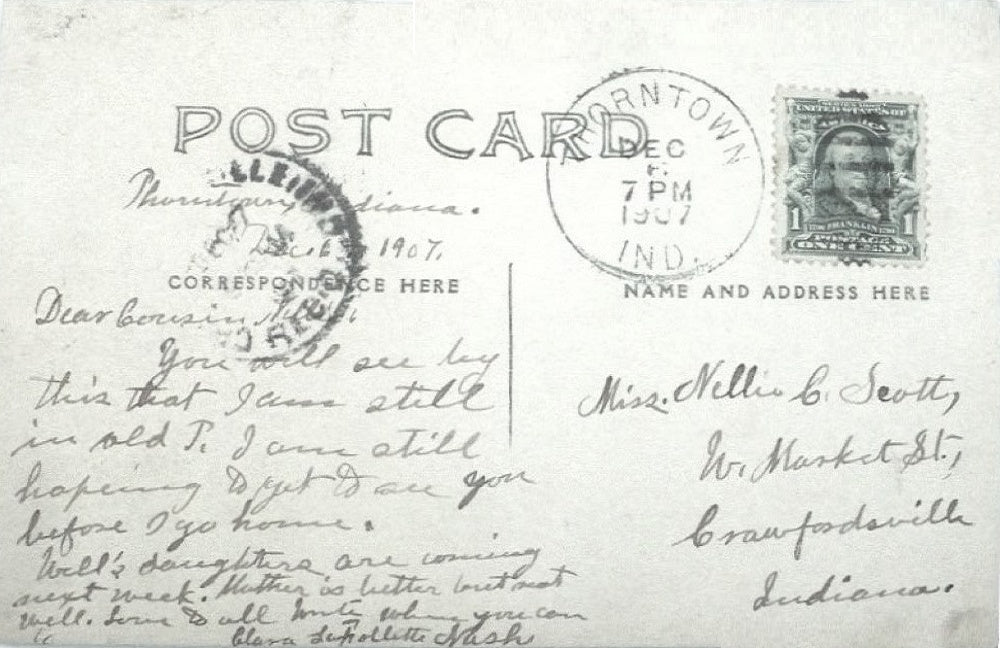 POST CARD
THORNTOWN
DEC
6
7 PM
1907
IND.
UNITED STATES OF
AMERICA
1 FRANKLIN 1
ONE CENT
Thorntown, Indiana.
Dec. 6 1907.
CORRESPONDENCE HERE
NAME AND ADDRESS HERE
REC'D
Dear Cousin
You will see by
this that I am still
in old T. I am still
hopeing to get to see you
before I go home.
Will's daughters are coming
next week. Mother is better but not
well. Love to all Write when you can
Clara LaFollette Nash
Miss. Nellie C. Scott,
W. Market St.,
Crawfordsville
Indiana.